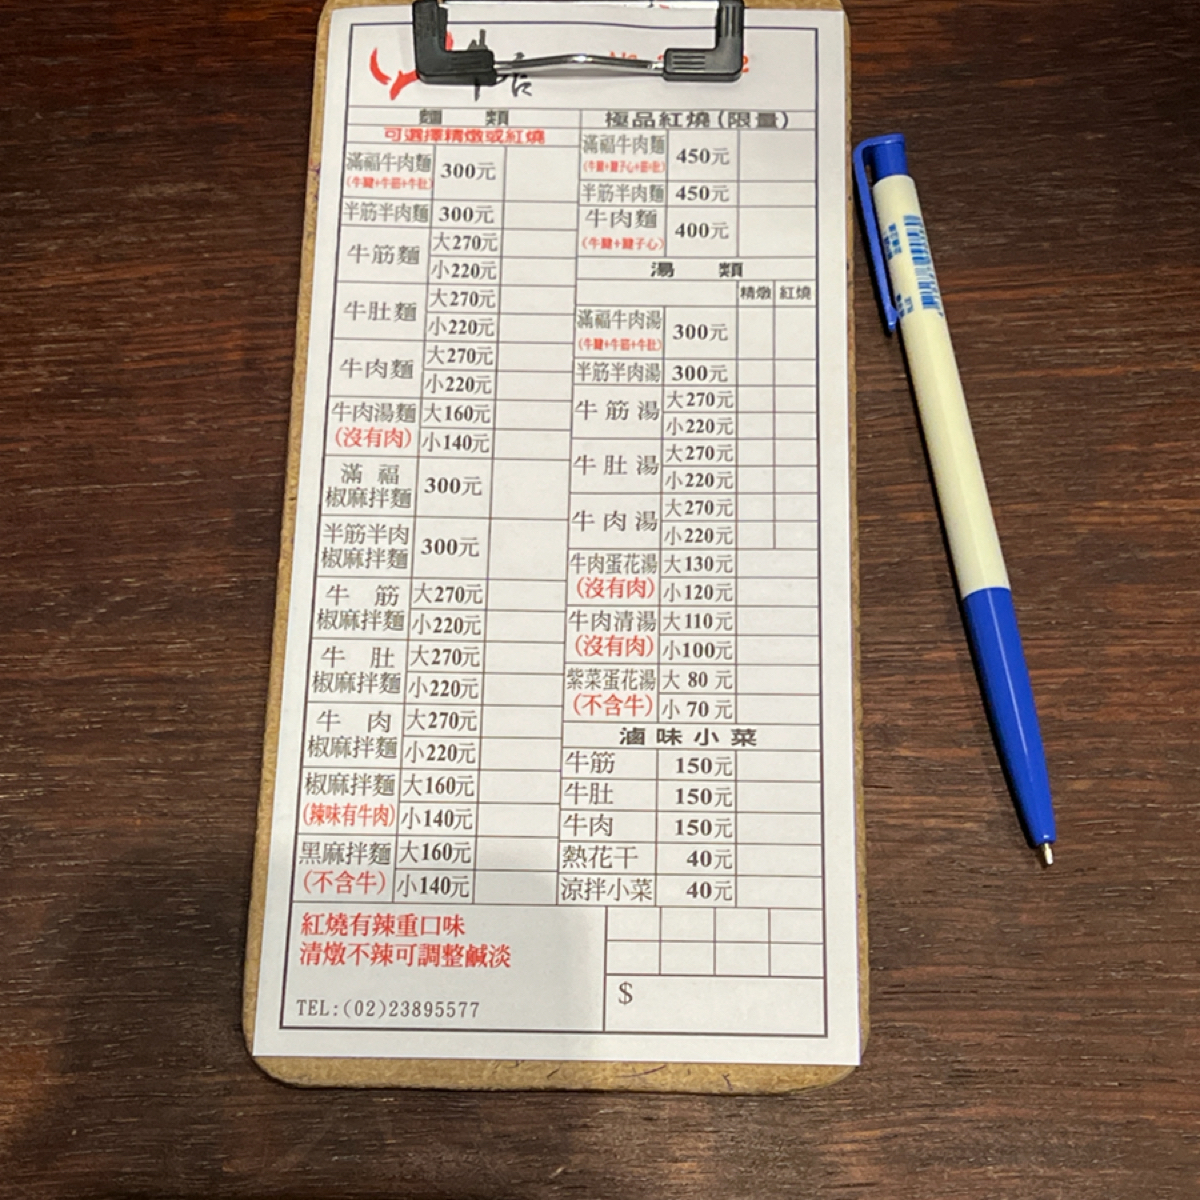 牛店
麵 類
可選擇精燉或紅燒
滿福牛肉麵 300元
(牛腱+牛筋+牛肚)
半筋半肉麵 300元
牛筋麵 大270元
小220元
牛肚麵 大270元
小220元
牛肉麵 大270元
小220元
牛肉湯麵 大160元
(沒有肉) 小140元
滿福
椒麻拌麵 300元
半筋半肉
椒麻拌麵 300元
牛筋 大270元
椒麻拌麵 小220元
牛肚 大270元
椒麻拌麵 小220元
牛肉 大270元
椒麻拌麵 小220元
椒麻拌麵 大160元
(辣味有牛肉) 小140元
黑麻拌麵 大160元
(不含牛) 小140元
極品紅燒(限量)
滿福牛肉麵 450元
(牛腱+腱子心+筋+肚)
半筋半肉麵 450元
牛肉麵 400元
(牛腱+腱子心)
湯 類
精燉 紅燒
滿福牛肉湯 300元
(牛腱+牛筋+牛肚)
半筋半肉湯 300元
牛筋湯 大270元
小220元
牛肚湯 大270元
小220元
牛肉湯 大270元
小220元
牛肉蛋花湯 大130元
(沒有肉) 小120元
牛肉清湯 大110元
(沒有肉) 小100元
紫菜蛋花湯 大 80 元
(不含牛) 小 70 元
滷味小菜
牛筋 150元
牛肚 150元
牛肉 150元
熱花干 40元
涼拌小菜 40元
紅燒有辣重口味
清燉不辣可調整鹹淡
TEL:(02)23895577
$